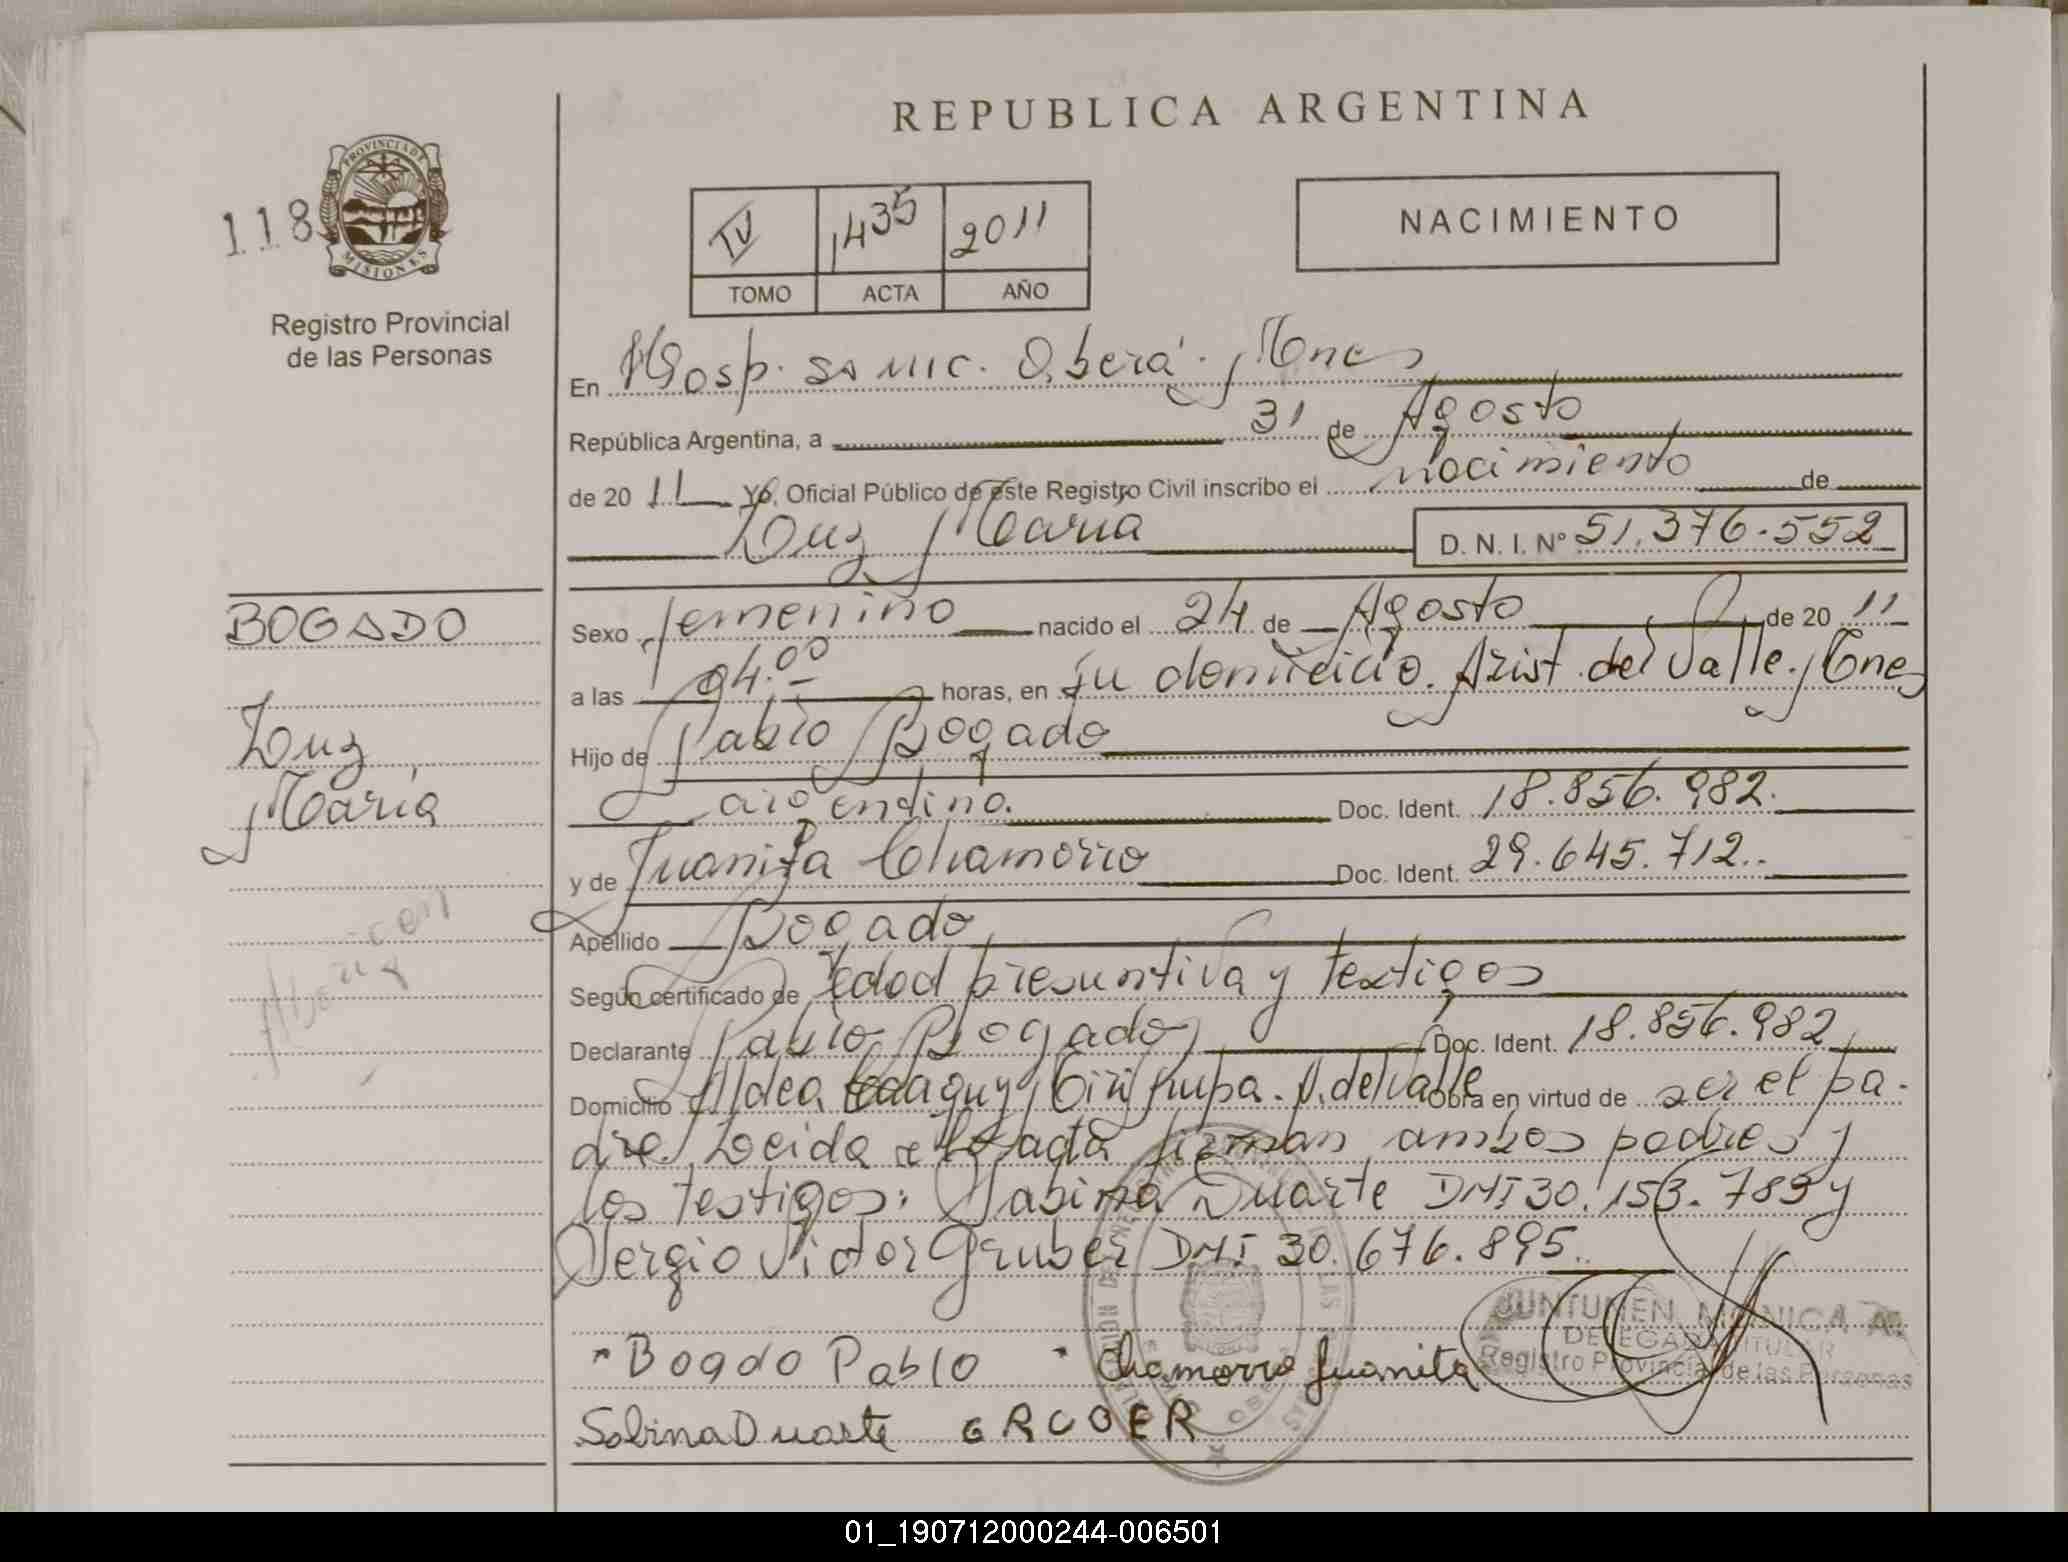 REPUBLICA ARGENTINA
118
PROVINCIA DE
MISIONES
Registro Provincial
de las Personas
IV 1435 2011
TOMO ACTA AÑO
NACIMIENTO
En Hosp. SAMIC. Oberá. Mnes
República Argentina, a 31 de Agosto
de 20 11 Yo, Oficial Público de este Registro Civil inscribo el nacimiento de
Luz María D. N. I. Nº 51.376.552
BOGADO
Luz
María
Aborigen
Sexo femenino nacido el 24 de Agosto de 20 11
a las 04:00 horas, en su domicilio. Arist. del Valle. Mnes
Hijo de Pablo Bogado
argentino. Doc. Ident. 18.856.982.
y de Juanita Chamorro Doc. Ident. 29.645.712..
Apellido Bogado
Según certificado de edad presuntiva y testigos
Declarante Pablo Bogado Doc. Ident. 18.856.982
Domicilio Aldea A. del Valle Obra en virtud de ser el pa-
dre. Leida el acta firman ambos padres y
los testigos: Sabina Duarte DNI 30.153.789 y
Sergio Victor Gruber DNI 30.676.895.
Bogdo Pablo Chamorro Juanita
JUNTUNEN MONICA A.
DELEGADA TITULAR
Registro Provincial de las Personas
Sabina Duarte GRUBER
01_190712000244-006501